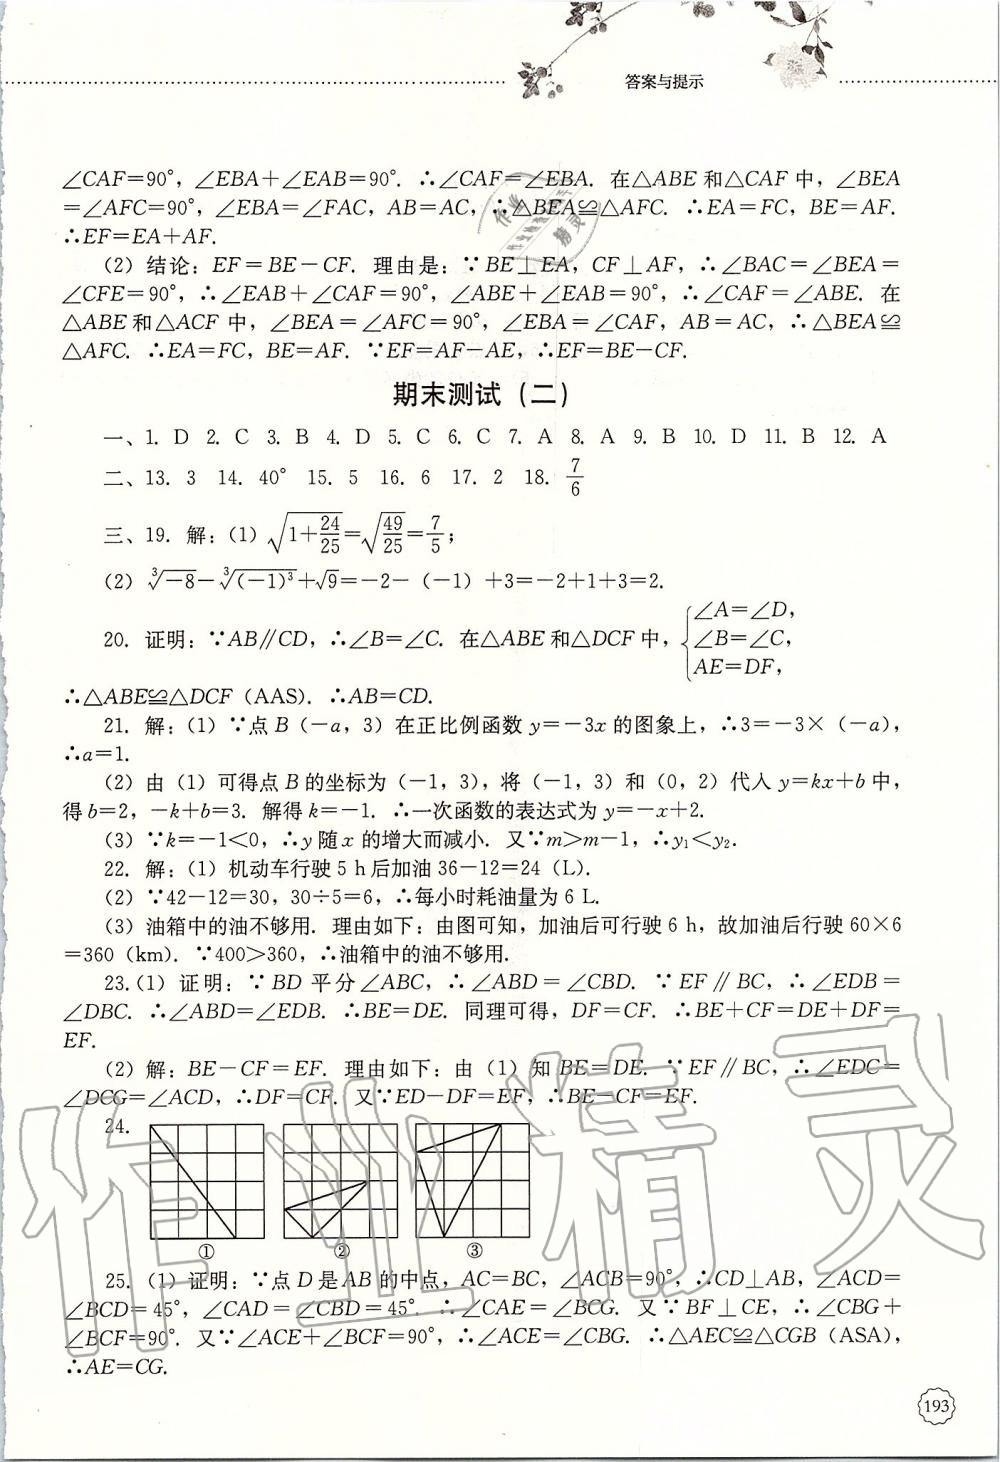 答案与提示
∠CAF=90°，∠EBA+∠EAB=90°. ∴∠CAF=∠EBA. 在△ABE 和△CAF 中，∠BEA
=∠AFC=90°，∠EBA=∠FAC，AB=AC，∴△BEA≌△AFC. ∴EA=FC，BE=AF.
∴EF=EA+AF.
(2) 结论：EF=BE-CF. 理由是：∵BE⊥EA，CF⊥AF，∴∠BAC=∠BEA=
∠CFE=90°，∴∠EAB+∠CAF=90°，∠ABE+∠EAB=90°，∴∠CAF=∠ABE. 在
△ABE 和△ACF 中，∠BEA=∠AFC=90°，∠EBA=∠CAF，AB=AC，∴△BEA≌
△AFC. ∴EA=FC，BE=AF. ∵EF=AF-AE，∴EF=BE-CF.
期末测试（二）
一、1. D 2. C 3. B 4. D 5. C 6. C 7. A 8. A 9. B 10. D 11. B 12. A
二、13. 3 14. 40° 15. 5 16. 6 17. 2 18. 7/6
三、19. 解：(1) √(1+24/25)=√(49/25)=7/5；
(2) ³√-8-³√(-1)³+√9=-2-(-1)+3=-2+1+3=2.
20. 证明：∵AB∥CD，∴∠B=∠C. 在△ABE 和△DCF 中，{∠A=∠D，
∠B=∠C，
AE=DF，
∴△ABE≌△DCF (AAS). ∴AB=CD.
21. 解：(1) ∵点 B (-a，3) 在正比例函数 y=-3x 的图象上，∴3=-3×(-a)，
∴a=1.
(2) 由 (1) 可得点 B 的坐标为 (-1，3)，将 (-1，3) 和 (0，2) 代入 y=kx+b 中，
得 b=2，-k+b=3. 解得 k=-1. ∴一次函数的表达式为 y=-x+2.
(3) ∵k=-1<0，∴y 随 x 的增大而减小. 又∵m>m-1，∴y₁<y₂.
22. 解：(1) 机动车行驶 5 h 后加油 36-12=24 (L).
(2) ∵42-12=30，30÷5=6，∴每小时耗油量为 6 L.
(3) 油箱中的油不够用. 理由如下：由图可知，加油后可行驶 6 h，故加油后行驶 60×6
=360 (km). ∵400>360，∴油箱中的油不够用.
23. (1) 证明：∵BD 平分∠ABC，∴∠ABD=∠CBD. ∵EF∥BC，∴∠EDB=
∠DBC. ∴∠ABD=∠EDB. ∴BE=DE. 同理可得，DF=CF. ∴BE+CF=DE+DF=
EF.
(2) 解：BE-CF=EF. 理由如下：由 (1) 知 BE=DE. ∵EF∥BC，∴∠EDC=
∠DCG=∠ACD，∴DF=CF. 又∵ED-DF=EF，∴BE-CF=EF.
24.
① ② ③
25. (1) 证明：∵点 D 是 AB 的中点，AC=BC，∠ACB=90°，∴CD⊥AB，∠ACD=
∠BCD=45°，∠CAD=∠CBD=45°. ∴∠CAE=∠BCG. 又∵BF⊥CE，∴∠CBG+
∠BCF=90°. 又∵∠ACE+∠BCF=90°，∴∠ACE=∠CBG. ∴△AEC≌△CGB (ASA)，
∴AE=CG.
193
作业精灵